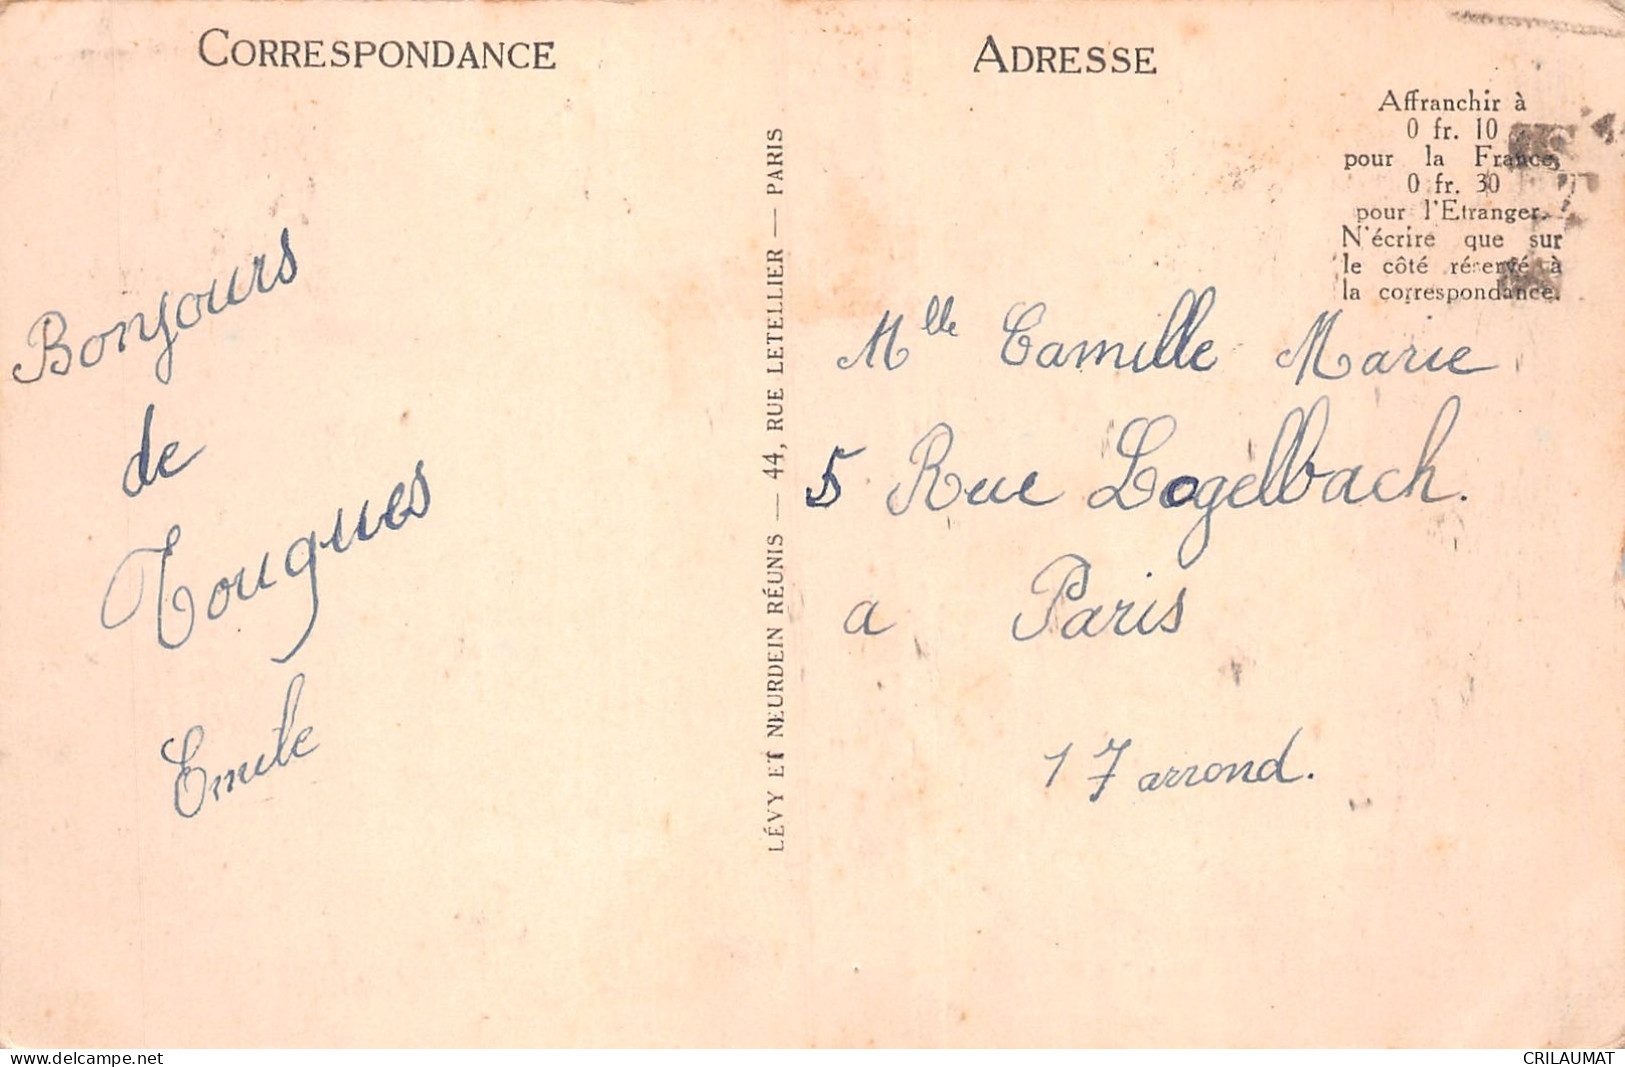 CORRESPONDANCE
Bonjours
de
Touques
Emile
LÉVY ET NEURDEIN RÉUNIS — 44, RUE LETELLIER — PARIS
ADRESSE
Affranchir à
0 fr. 10
pour la France,
0 fr. 30
pour l'Etranger.
N'écrire que sur
le côté réservé à
la correspondance.
Mlle Camille Marie
5 Rue Logelbach.
a Paris
17 arrond.
www.delcampe.net
CRILAUMAT